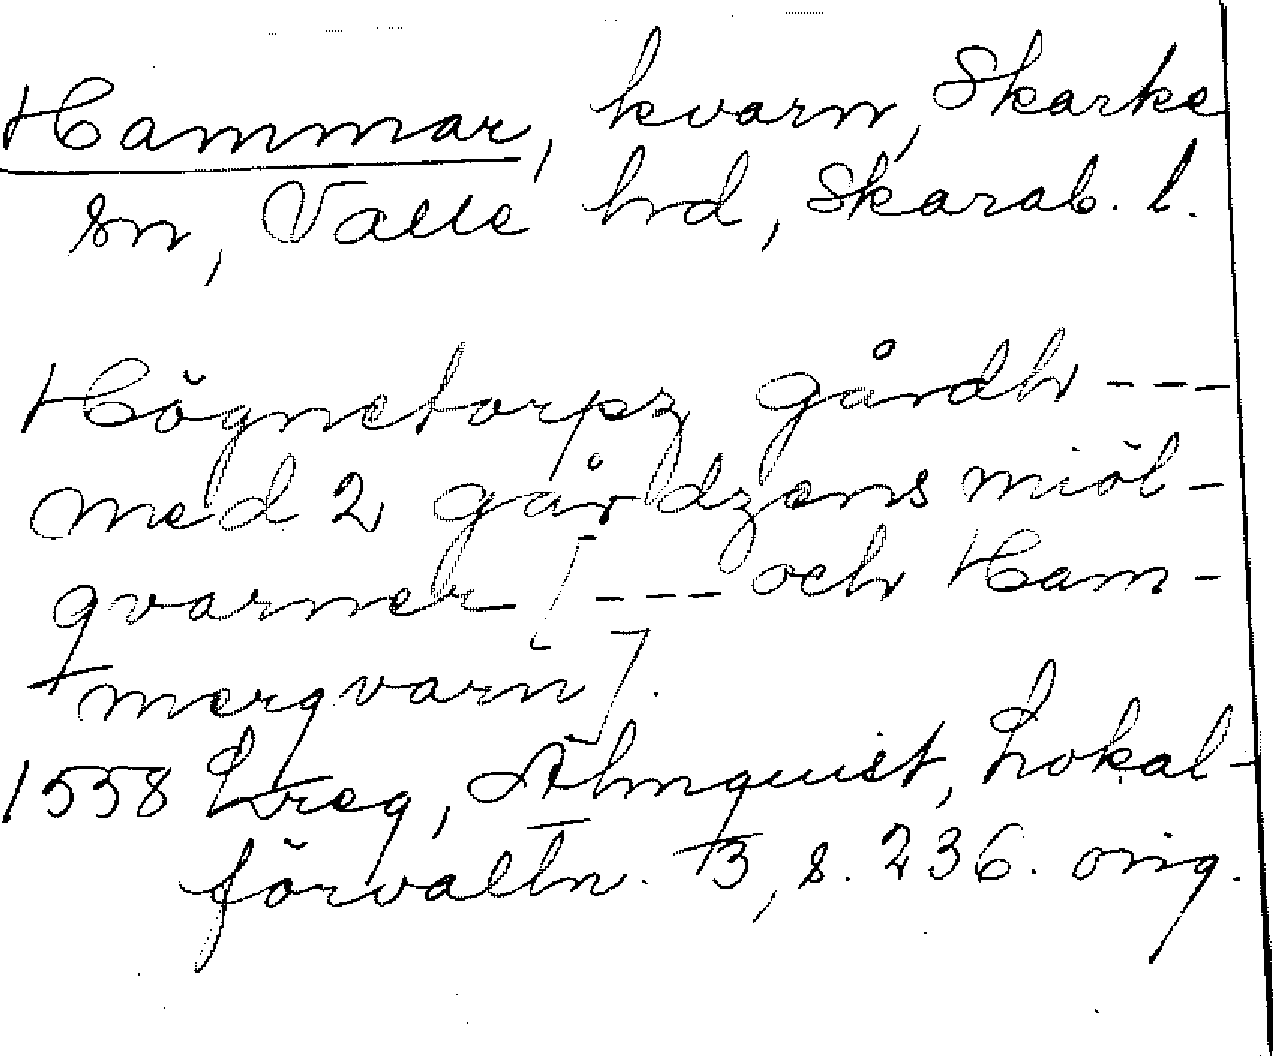 Hammar, kvarn, Skarke
sn, Valle hd, Skarab. l.
Högnetorpz gårdh ---
med 2 gårdzens miöl-
qvarner [--- och Ham-
merqvarn].
1558 Lreg, Almquist, Lokal-
förvaltn. 3, s. 236. orig.